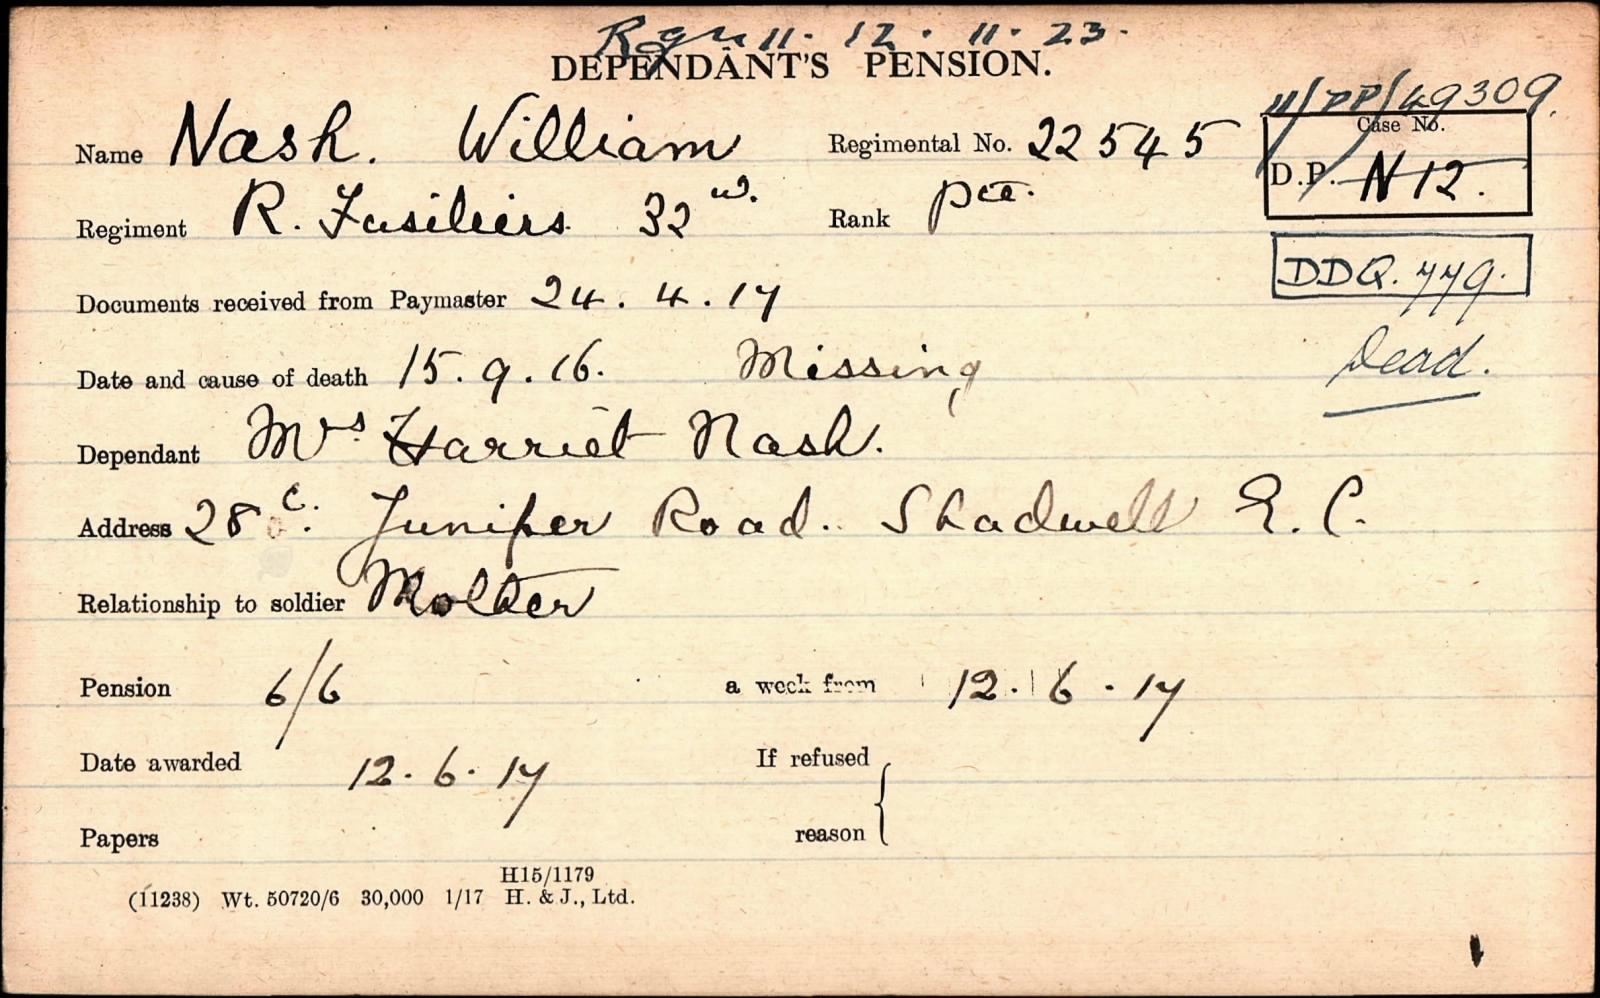 Rgn 11. 12. 11. 23.
DEPENDANT'S PENSION.
11/DP/49309.
Name Nash. William Regimental No. 22545 Case No.
D.P. N12.
Regiment R. Fusiliers 32nd. Rank Pte.
DDQ. 779.
Documents received from Paymaster 24. 4. 17
Dead.
Date and cause of death 15. 9. 16. Missing
Dependant Mrs Harriet Nash.
Address 28 c. Juniper Road. Shadwell E. C.
Relationship to soldier Mother
Pension 6/6 a week from 12. 6. 17
Date awarded 12. 6. 17 If refused
Papers reason
H15/1179
(11238) Wt. 50720/6 30,000 1/17 H. & J., Ltd.